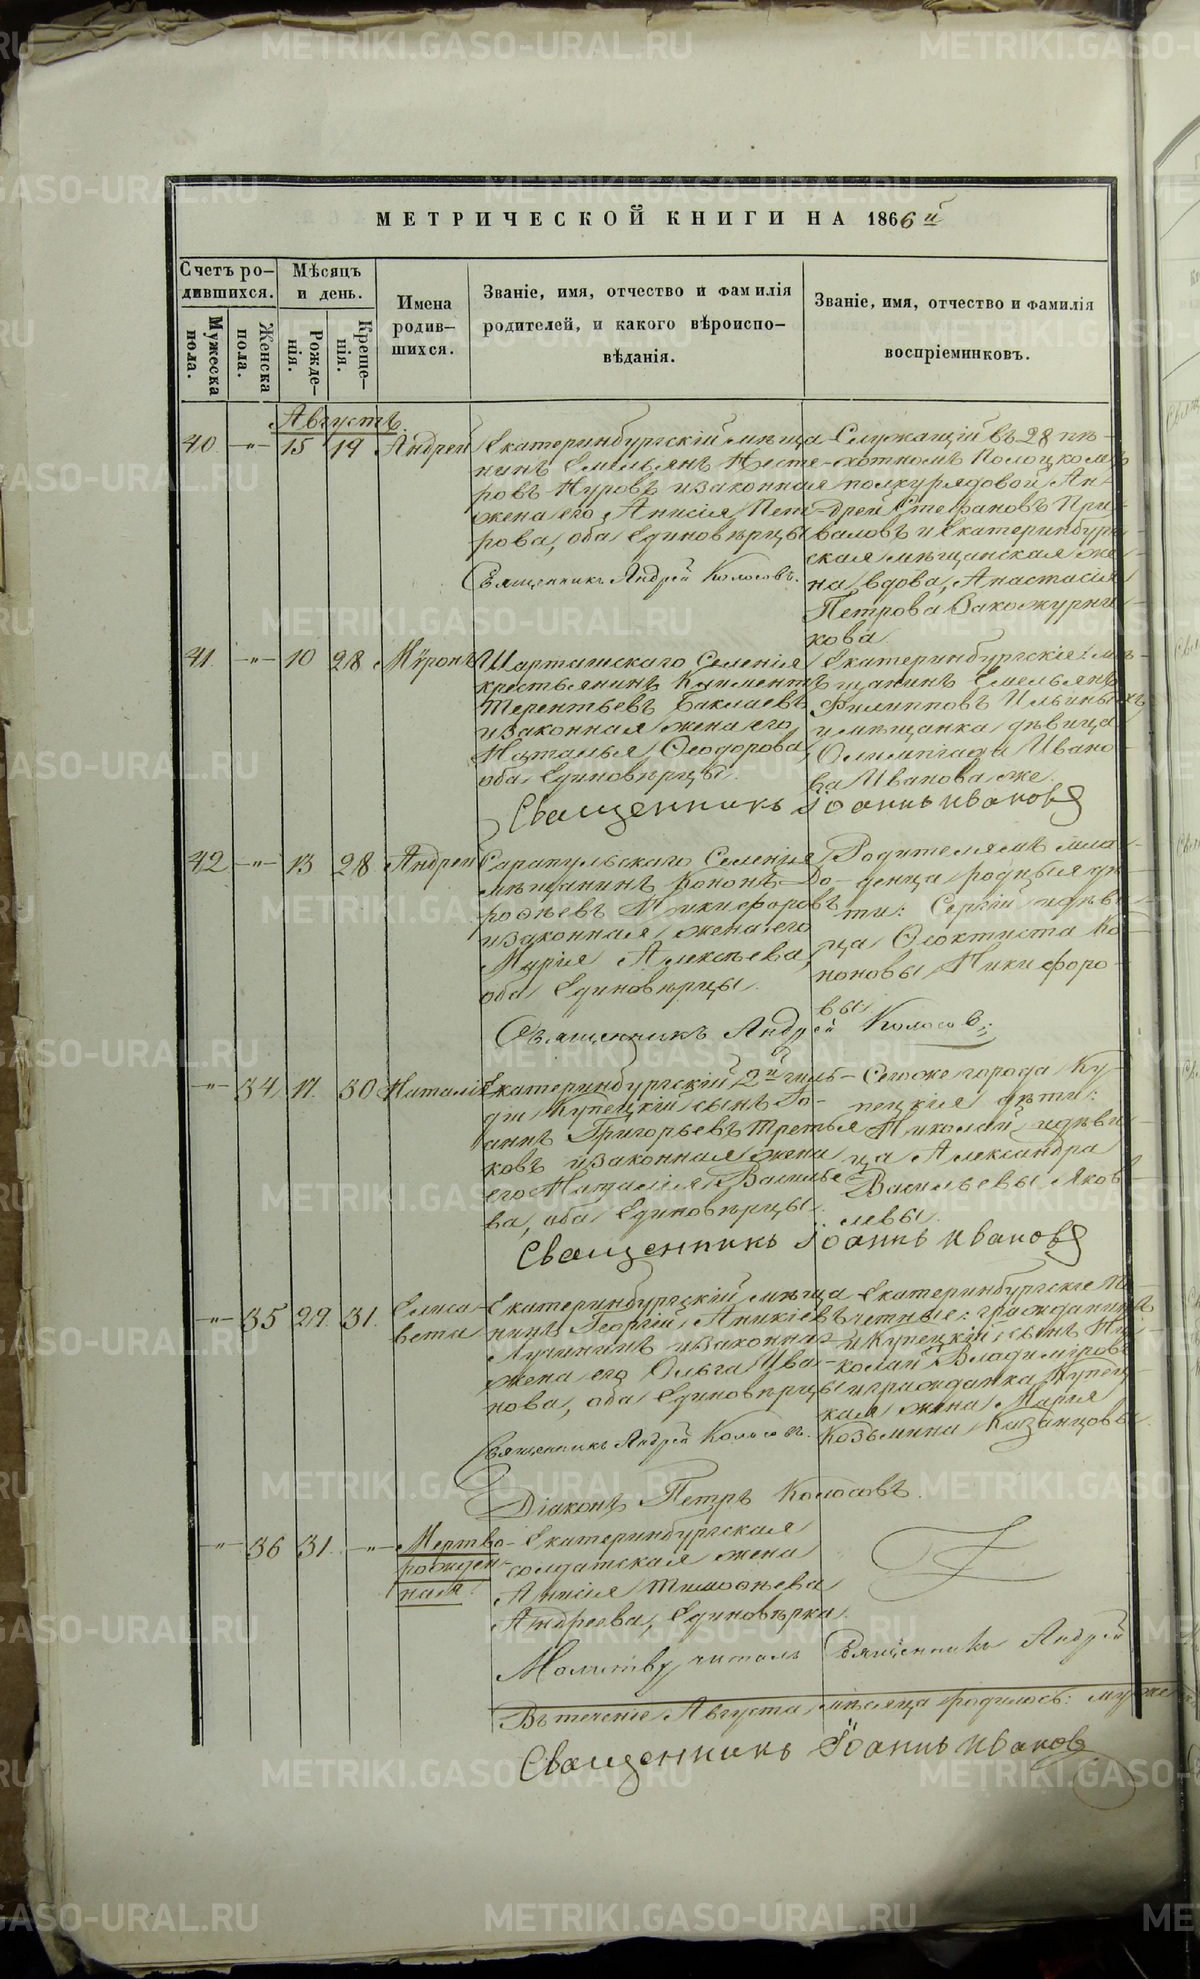 МЕТРИЧЕСКОЙ КНИГИ НА 1866й
Счетъ ро-
дившихся.
Мужеска
пола.
Женска
пола.
Мѣсяцъ
и день.
Рожде-
нія.
Креще-
нія.
Имена
родив-
шихся.
Званіе, имя, отчество и фамилія
родителей, и какого вѣроиспо-
вѣданія.
Званіе, имя, отчество и фамилія
воспріемниковъ.
Августъ.
40 -"- 15 19 Андрей
Екатеринбургскій мѣща-
нинъ Емельянъ Несте-
ровъ Нуровъ и законная
жена его, Анисія Пет-
рова, оба Единовѣрцы
Священникъ Андрей Колосовъ.
Служащій въ 28 пѣ-
хотномъ Полоцкомъ
полку рядовой Ан-
дрей Стефановъ При-
валовъ и Екатеринбург-
ская мѣщанская же-
на, вдова, Анастасія
Петрова
кова
41. -"- 10 28 Мѵронъ
Шарташскаго Селенія
крестьянинъ Климентъ
Терентьевъ Баклаевъ
и законная жена его,
Наталья Ѳеодорова
оба Единовѣрцы.
Екатеринбургскіе: мѣ-
щанинъ Емельянъ
Филипповъ Ильиныхъ
и мѣщанка дѣвица
Олимпіада Ивано-
ва Иванова же.
Священникъ Іоаннъ Ивановъ
42 -"- 13 28 Андрей
Сарапульскаго Селенія
мѣщанинъ Кононъ До-
роѳеевъ Никифоровъ
и законная жена его
Марія Алексѣева,
оба Единовѣрцы.
Родителямъ мла-
денца родныя дѣ-
ти: Сергій и дѣви-
ца Ѳеоктиста Ко-
ноновы Никифоро-
вы.
Священникъ Андрей Колосовъ.
-"- 34 17. 30 Наталія
Екатеринбургскій 2й гиль-
діи Купецкій сынъ Іо-
аннъ Григорьевъ Третья-
ковъ и законная жена
его Наталія Василье-
ва, оба Единовѣрцы.
Сегоже города Ку-
пецкія дѣти:
Николай и дѣви-
ца Александра
Васильевы Яков-
левы.
Священникъ Іоаннъ Ивановъ
-"- 35 29 31. Елиса-
вета
Екатеринбургскій мѣща-
нинъ Георгій Аникіевъ
Лучининъ и законная
жена его Ольга Ива-
нова, оба Единовѣрцы
Священникъ Андрей Колосовъ.
Екатеринбургскіе По-
четные: гражданинъ
и Купецкій сынъ Ни-
колай Владиміровъ
и гражданка Купец-
кая жена Марія
Козьмина Казанцовы.
Діаконъ Петръ Колосовъ.
-"- 36 31. -"- Мертво-
рожден-
ная.
Екатеринбургская
солдатская жена
Анисія Тимоѳеева
Андреева, Единовѣрка.
Молитву читалъ Священникъ Андрей
Въ теченіе Августа мѣсяца родилось:
Священникъ Іоаннъ Ивановъ
METRIKI.GASO-URAL.RU